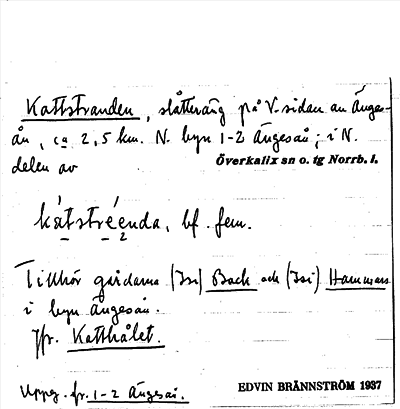 Kattstranden, slåtteräng på V-sidan av Änges-
ån, ca 2,5 km. N. byn 1-2 Ängesån; i N.
delen av Överkalix sn o. tg Norrb. l.
kátstréenda, bf. fem.
Tillhör gårdarna (Isi) Back och (Isi) Hammars
i byn Ängesån.
Jfr. Katthålet.
Uppg. fr. 1-2 Ängesån.
EDVIN BRÄNNSTRÖM 1937